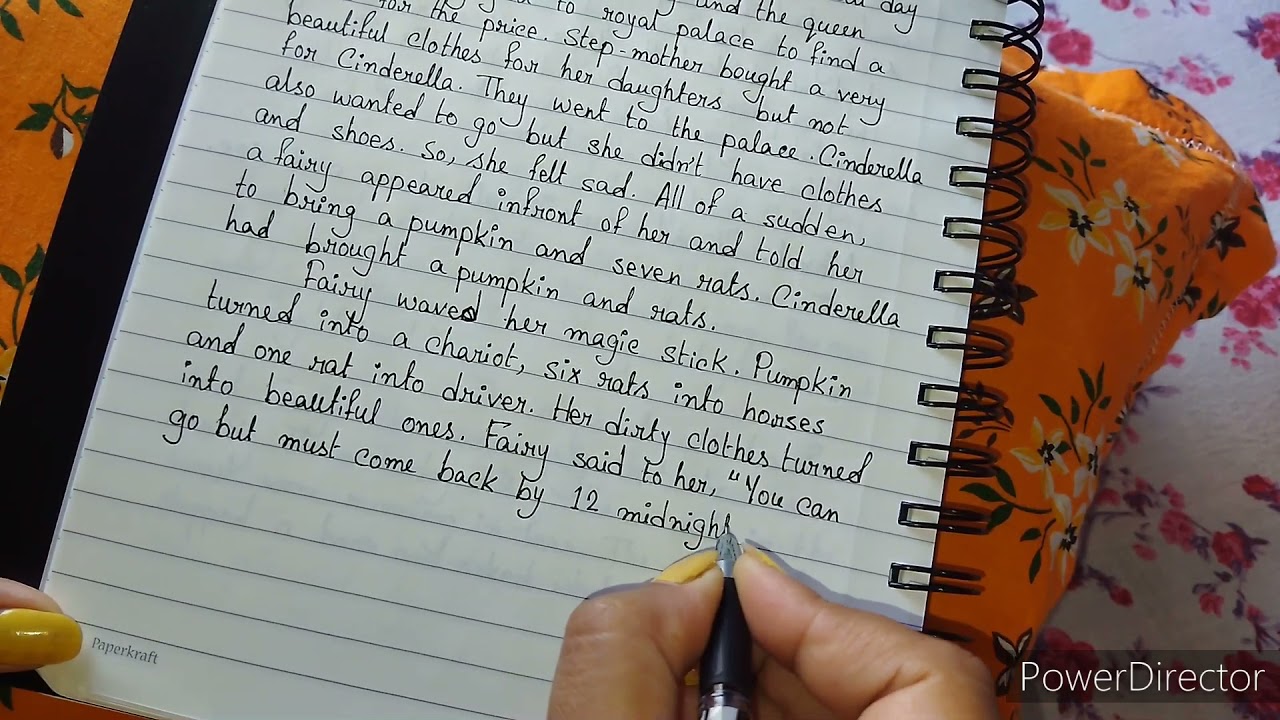 day
and the queen
to royal palace to find a
for the price. Step-mother bought a very
beautiful clothes for her daughters but not
for Cinderella. They went to the palace. Cinderella
also wanted to go but she didn't have clothes
and shoes. So, she felt sad. All of a sudden,
a fairy appeared infront of her and told her
to bring a pumpkin and seven rats. Cinderella
had brought a pumpkin and rats.
Fairy waved her magic stick. Pumpkin
turned into a chariot, six rats into horses
and one rat into driver. Her dirty clothes turned
into beautiful ones. Fairy said to her, "You can
go but must come back by 12 midnigh
Paperkraft
PowerDirector